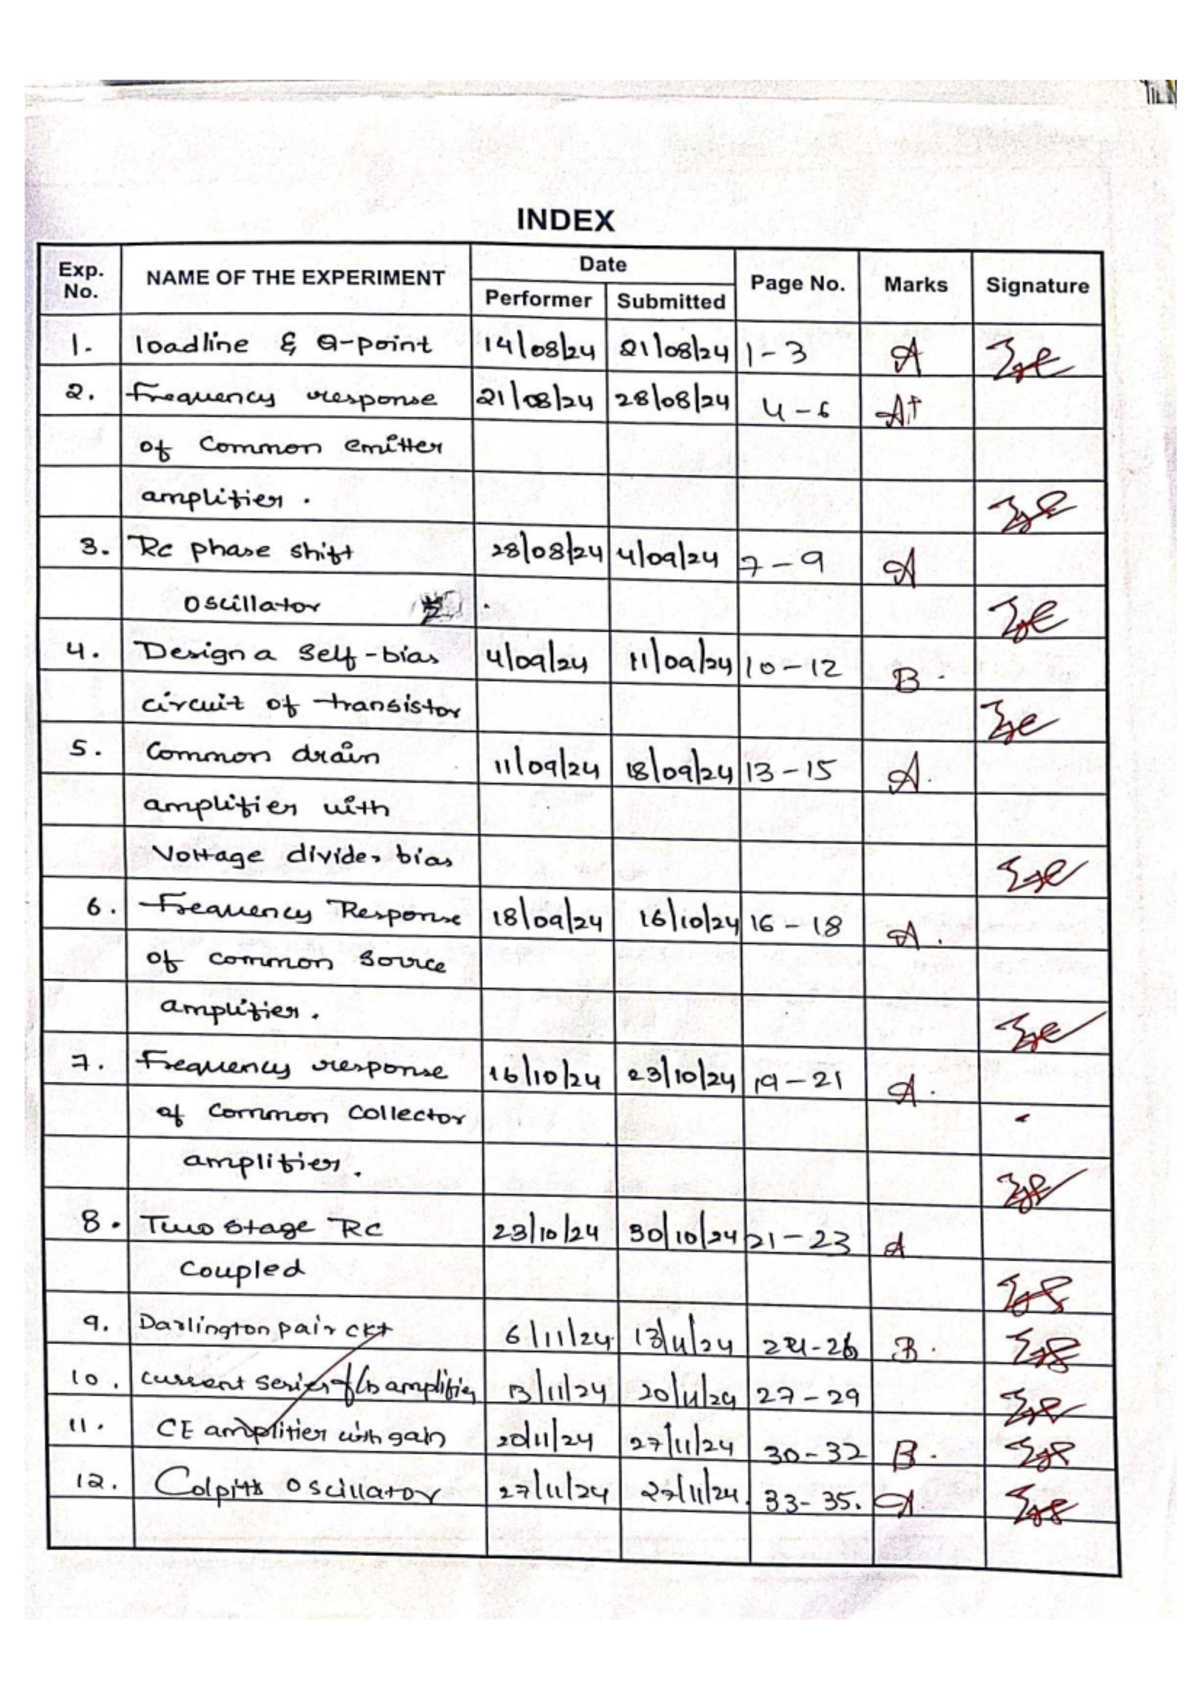 INDEX
Exp. No. NAME OF THE EXPERIMENT Date Page No. Marks Signature
Performer Submitted
1. loadline & Q-point 14/08/24 21/08/24 1-3 A
2. Frequency response 21/08/24 28/08/24 4-6 A+
of Common emitter
amplifier.
3. RC phase shift 28/08/24 4/09/24 7-9 A
oscillator
4. Design a Self-bias 4/09/24 11/09/24 10-12 B.
circuit of transistor
5. Common drain 11/09/24 18/09/24 13-15 A.
amplifier with
Voltage divider bias
6. Frequency Response 18/09/24 16/10/24 16-18 A.
of common source
amplifier.
7. Frequency response 16/10/24 23/10/24 19-21 A.
of common collector
amplifier.
8. Two stage RC 23/10/24 30/10/24 21-23 A
Coupled
9. Darlington pair ckt 6/11/24 13/11/24 24-26 B.
10. current series f/b amplifier 13/11/24 20/11/24 27-29
11. CE amplifier with gain 20/11/24 27/11/24 30-32 B.
12. Colpitts oscillator 27/11/24 27/11/24. 33-35. A.